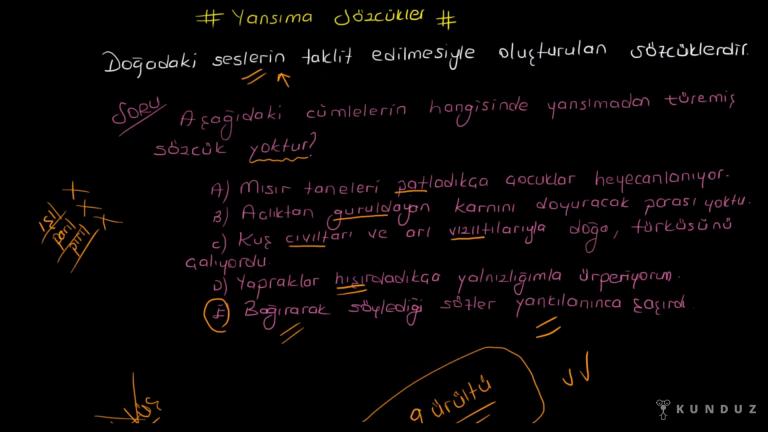 # Yansıma Sözcükler #
Doğadaki seslerin taklit edilmesiyle oluşturulan sözcüklerdir.
SORU Aşağıdaki cümlelerin hangisinde yansımadan türemiş
sözcük yoktur?
A) Mısır taneleri patladıkça çocuklar heyecanlanıyor.
B) Açlıktan guruldayan karnını doyuracak parası yoktu.
C) Kuş cıvıltıları ve arı vızıltılarıyla doğa, türküsünü
çalıyordu.
D) Yapraklar hışırdadıkça yalnızlığımla ürperiyorum.
E) Bağırarak söylediği sözler yankılanınca şaşırdı.
ışıl
parıl
pırıl
gürültü
KUNDUZ